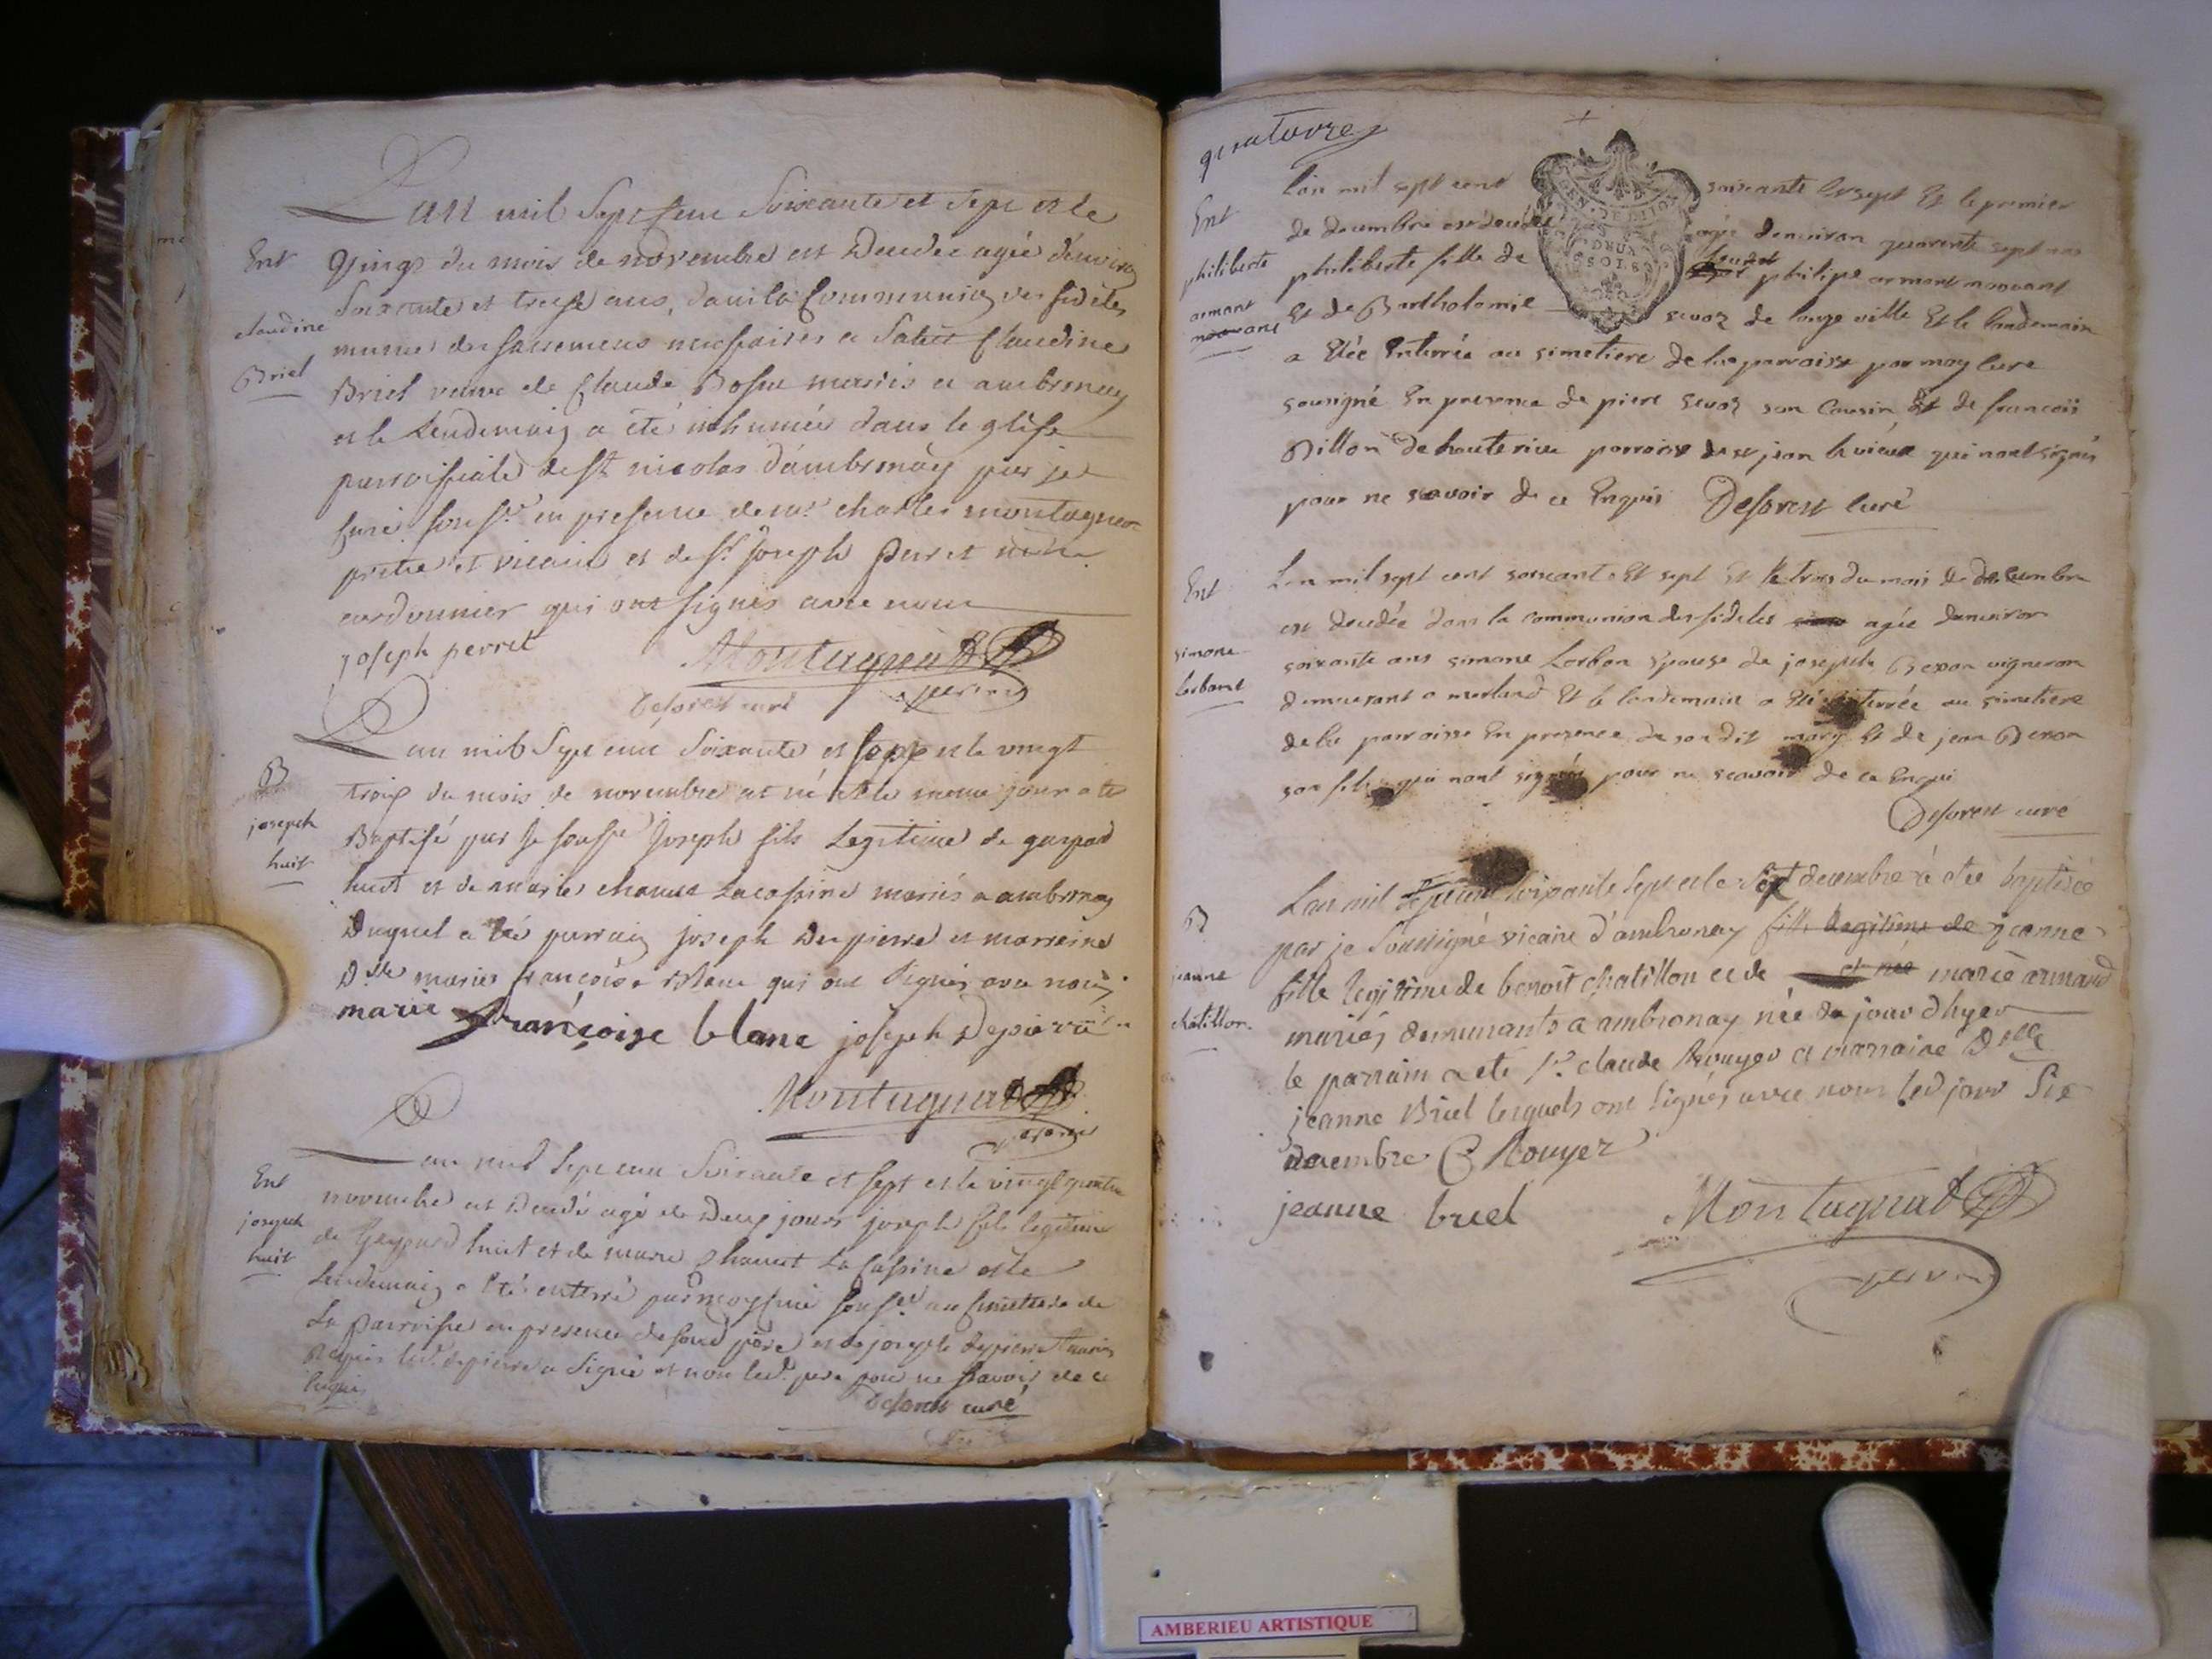 L'an mil sept cent soixante et sept et le
quinze du mois de novembre est décédée agée d'environ
soixante et treize ans, dans la communion des fidèles
munie des sacremens necessaires a salut Claudine
Briel veuve de Claude mariés a ambronay
et le lendemain a été inhumée dans l'eglise
parroissiale de st nicolas d'ambronay par je
curé souss.é en presence de m.r charles montagnat
pretre et vicaire et de s.r joseph perret
cordonnier qui ont signés avec nous
Ent
claudine
Briel
joseph perret
Montagnat
Desoret curé
L'an mil sept cent soixante et sept et le vingt
trois du mois de novembre est né et le meme jour a été
Baptisé par je souss.é joseph fils legitime de gaspard
huit et de marie chanut Lacassine mariés a ambronay
Duquel a été parrain joseph Depierre et marreine
D.lle marie françoise Blanc qui ont signés avec nous
B
joseph
huit
marie françoise blanc joseph depierre
Montagnat
L'an mil sept cent soixante et sept et le vingt quatre
novembre est decedé agé de deux jours joseph fils legitime
de Gaspard huit et de marie chanut La cassine et le
lendemain a été enterré par moy curé souss.é au simetiere de
la parroisse en presence de sond. père et de joseph depierre
led. depierre a signé et non led. pere pour ne scavoir de ce
enquis
Ent
joseph
huit
Desoret curé
quatorze
GEN. DE DIJON
DEUX
SOLS
L'an mil sept cent soixante et sept et le premier
de decembre est decedée agée denviron quarente sept ans
philiberte fille de feu philipe armant
et de Bartholomie sevoz de longe ville et le landemain
a etée enterrée au simetiere de la parroisse par moy curé
sousigné en presence de piere sevoz son cousin et de francois
Dillon de hauterive parroise de st jean le vieux qui nont signés
pour ne scavoir de ce enquis Desoret curé
Ent
philiberte
armant
L'an mil sept cent soixante et sept et le trois du mois de decembre
est decedée dans la communion des fideles agée denviron
soixante ans simone Lorban epouse de joseph Bexon vigneron
demeurant a merland et le landemain a eté enterrée au simetiere
de la parroisse en presence de son dit mary et de jean Bexon
son fils qui nont signés pour ne scavoir de ce enqui
Desoret curé
Ent
simone
Lorband
L'an mil sept cent soixante sept et le sept decembre a eté baptisée
par je soussigné vicaire d'ambronay fille legitime de jeanne
fille legitime de benoit chatillon et de et née marie armand
mariés demeurants a ambronay née du jour d'hyer
le parrain a eté s.r claude Rouyer et marraine D.elle
jeanne Briel lesquels ont signés avec nous led jour six
decembre C Rouyer
B
jeanne
chatillon
jeanne briel
Montagnat
AMBERIEU ARTISTIQUE